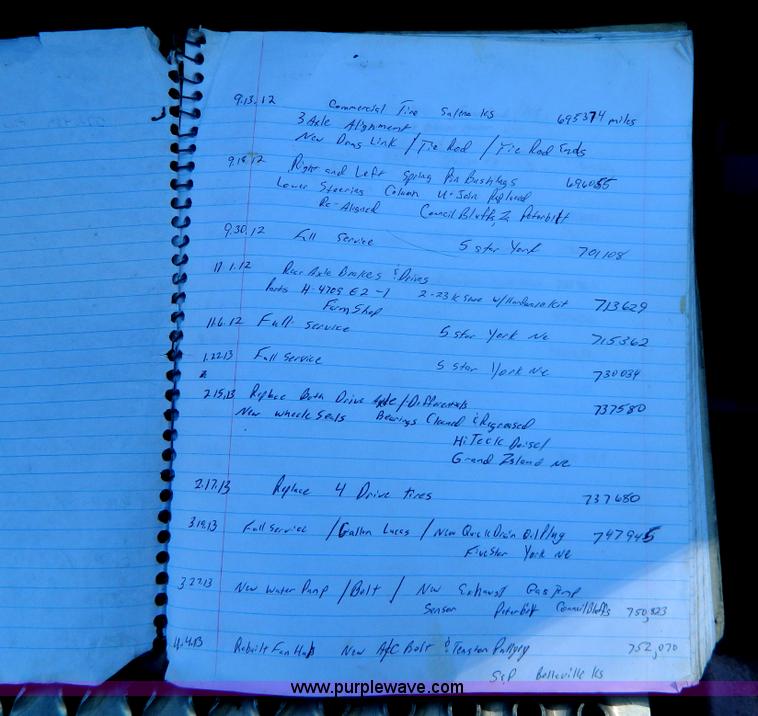 9.13.12 Commercial Tire Salena KS 695374 miles
3 Axle Alignment
New Drag Link / Tie Rod / Tie Rod Ends
9.18.12 Right and Left Spring Pin Bushings 696055
Lower Steering Column U-Join Replaced
Re-Aligned Council Bluffs, Ia Peterbilt
9.30.12 Full Service 5 star York 701108
11.1.12 Rear Axle Brakes & Drives
Parts H-4709 E2-1 2-23K Shoe w/Hardware Kit 713629
Farm Shop
11.6.12 Full Service 5 star York Ne 715362
1.22.13 Full Service 5 star York Ne 730034
2.15.13 Replace Both Drive Axle/Differentials 737580
New wheel Seals Bearings Cleaned & Regreased
Hi Teck Deisel
Grand Island Ne
2.17.13 Replace 4 Drive tires 737680
3.19.13 Full Service / Gallon Lucas / New Quick Drain Oil Plug 747945
Five Star York Ne
3.27.13 New Water Pump / Belt / New Exhaust Gas Temp
Sensor Peterbilt Council Bluffs 750,823
4.4.13 Rebuilt Fan Hub New A/C Belt & Tension Pulley 752,070
S&P Belleville KS
www.purplewave.com